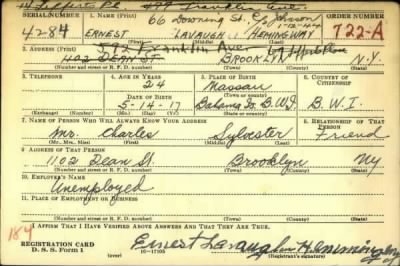 14 Lefferts Pl. 489 Franklin Ave.
SERIAL NUMBER 1. NAME (Print) 66 Downing St., ORDER NUMBER
4284 ERNEST LAVAUGH HEMINGWAY T22-A
(First) (Middle) (Last)
2. ADDRESS (Print) 592 Franklin Ave
1102 DEAN ST. BROOKLYN N.Y.
(Number and street or R. F. D. number) (Town) (County) (State)
3. TELEPHONE 4. AGE IN YEARS 5. PLACE OF BIRTH 6. COUNTRY OF CITIZENSHIP
24 Nassau
DATE OF BIRTH (Town or county)
5-14-17 Bahama Is. B.W.I. B.W.I.
(Exchange) (Number) (Mo.) (Day) (Yr.) (State or country)
7. NAME OF PERSON WHO WILL ALWAYS KNOW YOUR ADDRESS 8. RELATIONSHIP OF THAT PERSON
Mr. Charles Sylvester Friend
(Mr., Mrs., Miss) (First) (Middle) (Last)
9. ADDRESS OF THAT PERSON
1102 Dean St. Brooklyn NY
(Number and street or R. F. D. number) (Town) (County) (State)
10. EMPLOYER'S NAME
Unemployed
11. PLACE OF EMPLOYMENT OR BUSINESS
(Number and street or R. F. D. number) (Town) (County) (State)
I AFFIRM THAT I HAVE VERIFIED ABOVE ANSWERS AND THAT THEY ARE TRUE.
184
REGISTRATION CARD
D. S. S. Form 1 16-17105 Ernest Lavaughn Hemingway
(Registrant's signature)